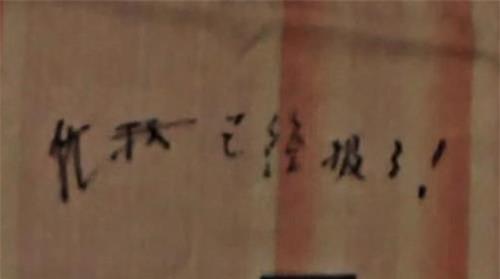 仇我已经报了！